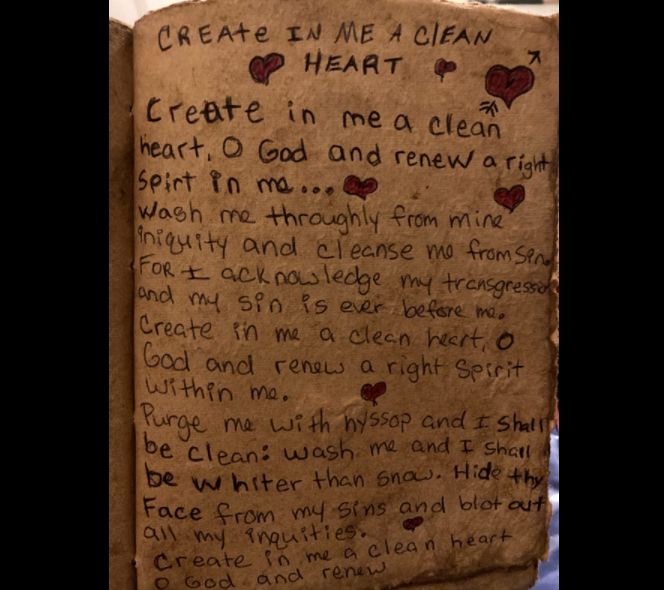 CREAte IN ME A ClEAN
HEART
Create in me a clean
heart, O God and renew a right
Spirt in me...
Wash me throughly from mine
iniquity and cleanse me from sin.
FOR I acknowledge my transgressio
and my sin is ever before me.
Create in me a clean heart, O
God and renew a right Spirit
Within me.
Purge me with hyssop and I shall
be clean: wash me and I shall
be whiter than snow. Hide thy
Face from my sins and blot out
all my inquities.
Create in me a clean heart
O God and renew